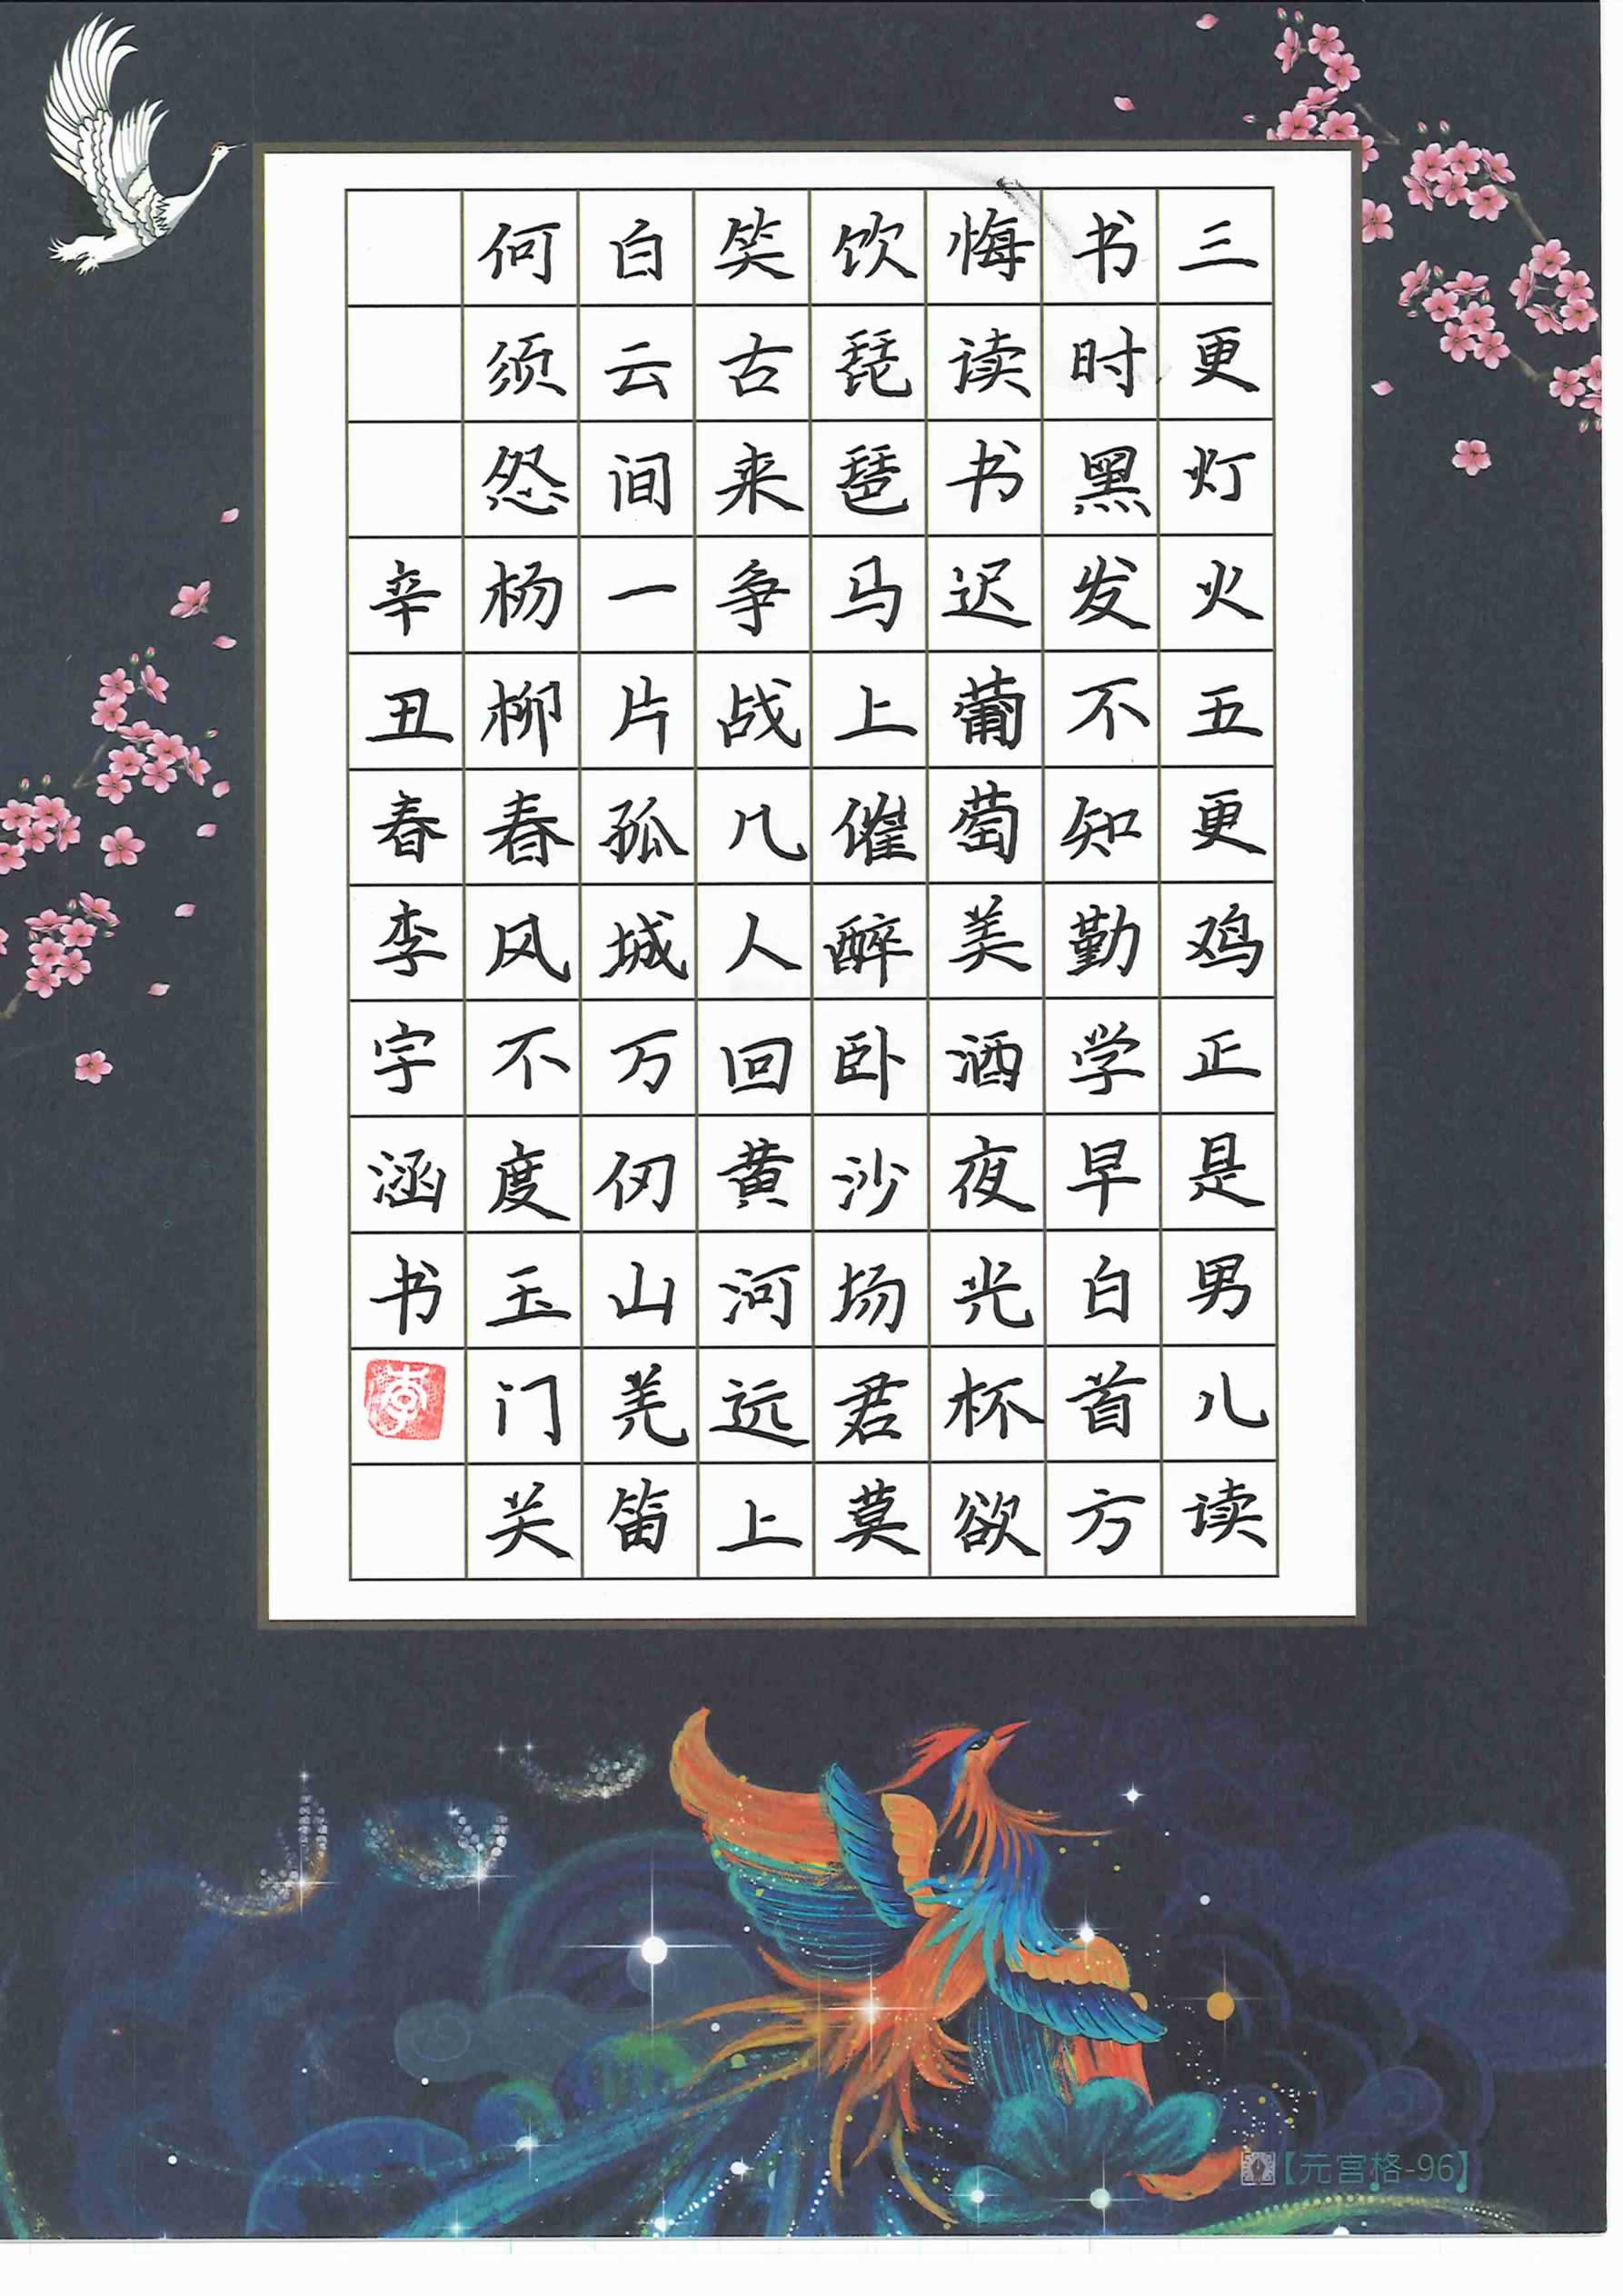 三更灯火五更鸡正是男儿读
书时黑发不知勤学早白首方
悔读书迟葡萄美酒夜光杯欲
饮琵琶马上催醉卧沙场君莫
笑古来争战几人回黄河远上
白云间一片孤城万仞山羌笛
何须怨杨柳春风不度玉门关
辛丑春李宇涵书
李
【元宫格-96】